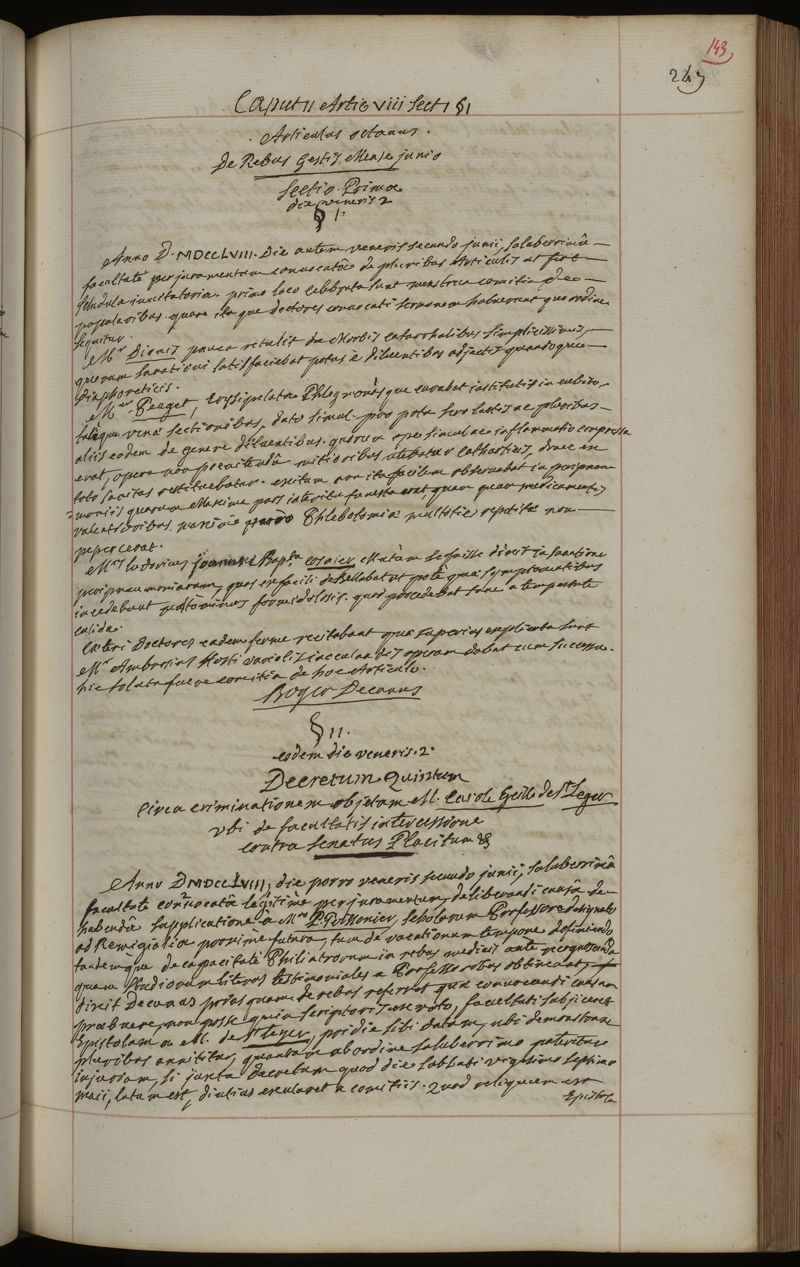 143
247
Caput II Artic VIII Sect I § I
Articulus octavus.
De Rebus Gestis Mense junio
Sectio Prima
die veneris 2
§ I.
Anno D. MDCCLVIII. Die autem veneris secundo junii, saluberrimâ
facultate per juramentum convocatâ de pluribus Articulis ut fert
schedula invitatoria. primo loco celebrata sunt menstrua comitia pro
popularibus. quare itaque doctores convocati sermonem habuerunt quo ordine
sequitur.
Mr Dionis pauca retulit de Morbis catarrhalibus simplicissimis,
quorum sanationi satisfaciebat potus è diluentibus adjectis quandoque
diaphoreticis.
Mr Peaget, Erysipelata Phlegmonesque curabat institutis in cubito,
talisque venæ sectionibus, dato simul pro potu sero lactis ac pluribus
aliis eodem de genere diluentibus. quorum ope simul ac inflammatio compressa
erat, opera non poenitendâ mitioribus utebatur catharticis, donec ex
toto sanitas restituebatur. exitum non ita facilem observabat in peripneu
=moniis quarum Maxime pars interitu funesta erat quam quam medicamentis
valentioribus, nec Phlebotomiæ multoties repetitæ non
pepercerat.
Mr Ludovicus joannes Bapta cosnier Multùm se fuisse dixit in sanatione
peripneumoniarum, quas ex facili debellabat ut potè quæ symptomatibus
incedebant minus formidolosis. quod procedebat tunc a tempestate
calida.
Cæteri Doctores eadem ferme recitabant quæ superius explicata sunt
Mr Ambrosius Hosti variolis inoculandis operam dabat cum successu.
hic soluta fuere comitia de hoc Articulo.
Boyer Decanus
§ II.
eodem die veneris. 2.
Decretum Quintum
Circa criminationem objectam M. Carolo Geille de St Leger
ubi de facultatis intercessione
contra Senatus Placitum &
Anno D MDCCLVIII, die porro veneris secundo junii, saluberrimâ
facultate convocatâ legitimè per juramentum, deliberandi causâ de
habendâ supplicatione a Mro P. Poissonier, scholarum Professore designato
ad Remigialia proximè futura, tum de vacationum tempore definiendo
tandemque de capacitate Philiatrorum in rebus medicis ante recognoscenda
quam studiorum literas testimoniales a Professoribus obtineant,
dixit Decanus priusquam de rebus referret quæ convocandi causam
præbuere, non posse quin scriptoris ex voto, facultati subjiceret
Epistolam a M. de St Leger, pridie sibi datam, ubi demonstrare
pluribus annititur, quantam ab ordine saluberrimo pateretur
injuriam, si juxta decretum quod die sabbati vigesimo septimo
maii, latum est, diutius exularet a comitiis. Quod reliquum est
Epistola